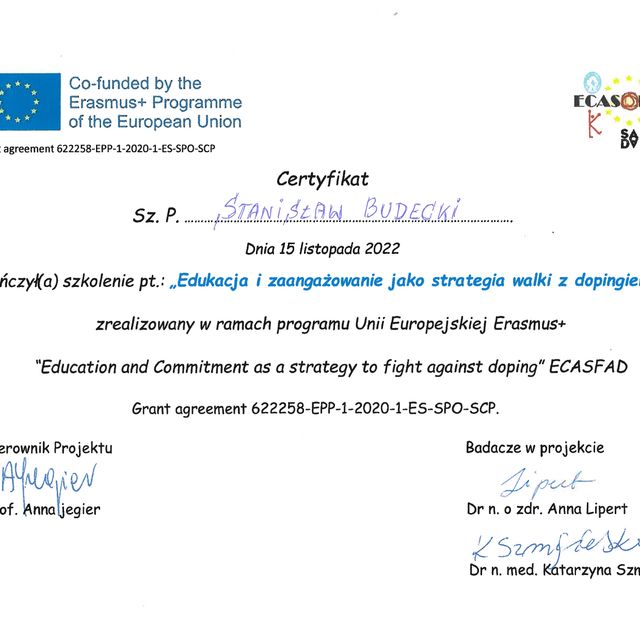 Co-funded by the
Erasmus+ Programme
of the European Union
agreement 622258-EPP-1-2020-1-ES-SPO-SCP
Certyfikat
Sz. P. STANISŁAW BUDECKI
Dnia 15 listopada 2022
ńczył(a) szkolenie pt.: „Edukacja i zaangażowanie jako strategia walki z dopingie
zrealizowany w ramach programu Unii Europejskiej Erasmus+
“Education and Commitment as a strategy to fight against doping” ECASFAD
Grant agreement 622258-EPP-1-2020-1-ES-SPO-SCP.
erownik Projektu
of. Anna jegier
Badacze w projekcie
Lipert
Dr n. o zdr. Anna Lipert
Dr n. med. Katarzyna Szm